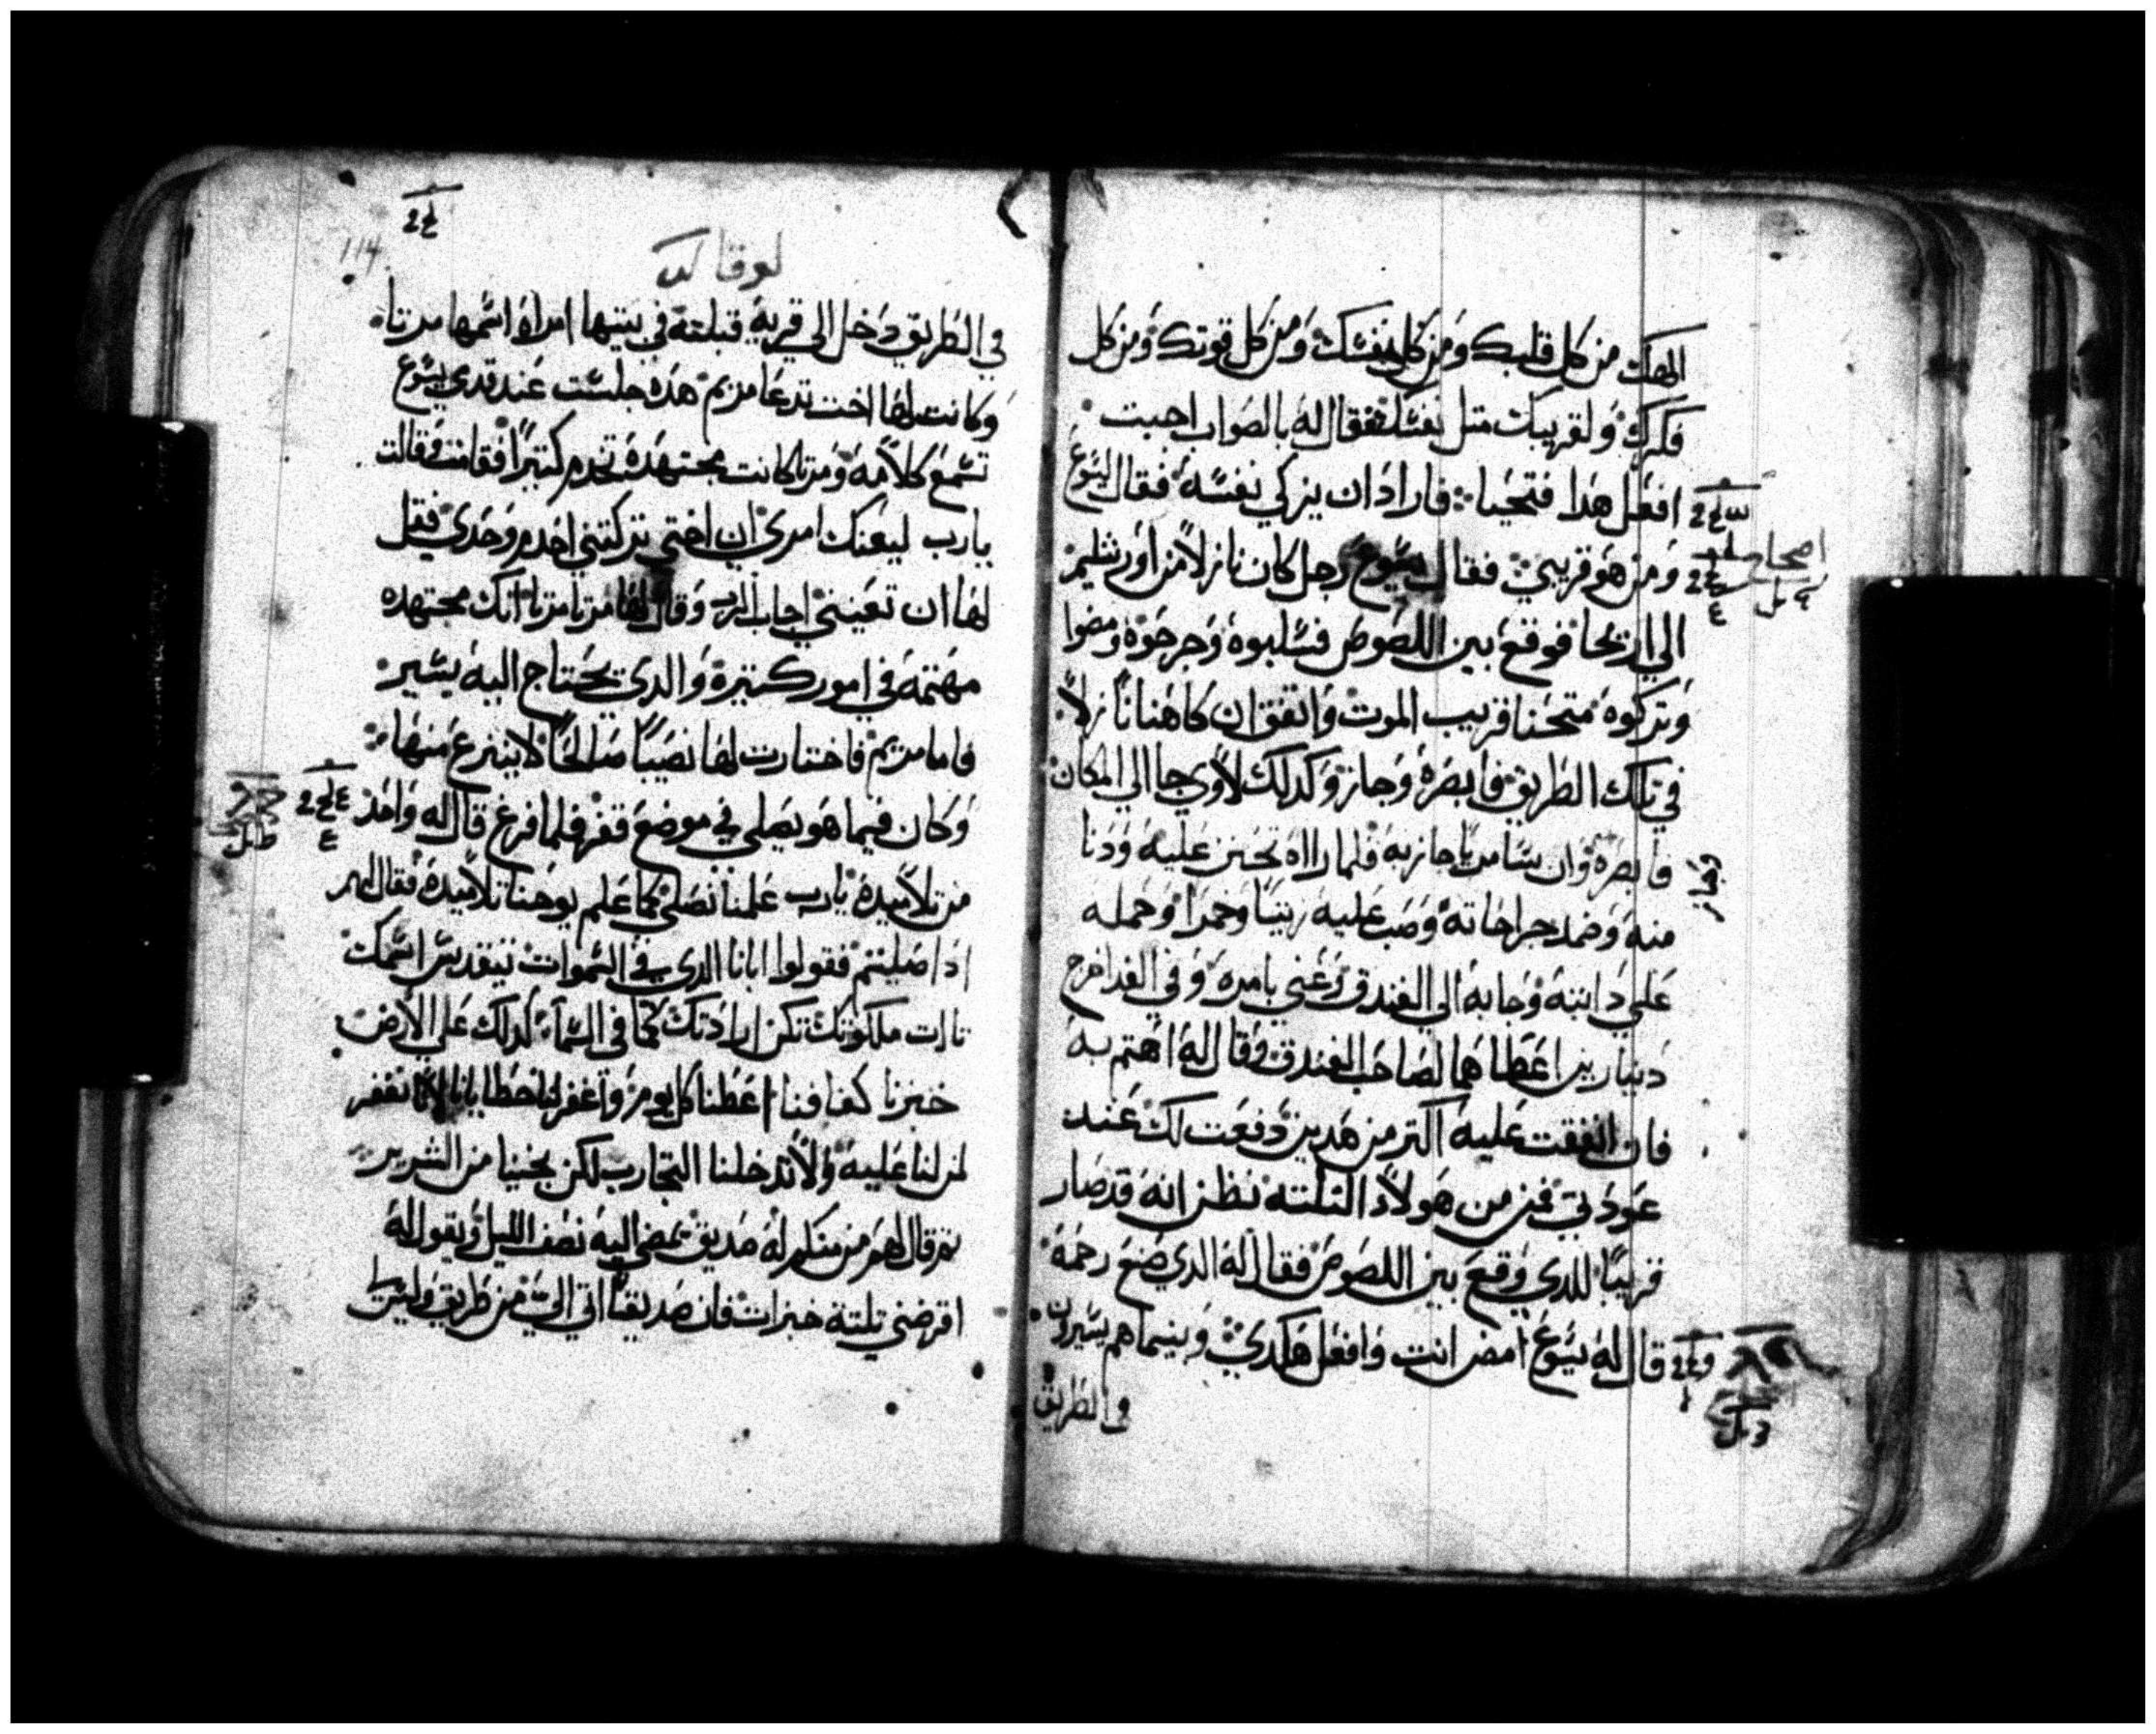 الهك من كل قلبك ومن كل نفسك ومن كل قوتك ومن كل
فكرك ولقريبك متل نفسك فقال له بالصواب اجبت
افعل هدا فتحيا فاراد ان يزكي نفسه فقال ليسوع
ومن هو قريبي فقال يسوع رجل كان نازلاً من اورشليم
الي اريحا فوقع بين اللصوص فسلبوه وجرحوه ومضوا
وتركوه متخنا قريب الموت واتفق ان كاهنا نازلاً
في تلك الطريق فابصره وجاز وكدلك لاوي جا الي المكان
فابصره وان سامريا جاز به فلما راه تحنن عليه ودنا
وجاز
منه وضمد جراحاته وصب عليه زيتا وخمرا وحمله
علي دابته وجا به الي الفندق وعني بامره وفي الغد اخرج
دينارين اعطاهما لصاحب الفندق وقال له اهتم به
فان انفقت عليه اكتر من هدين دفعت لك عند
عودتي فمن من هولاء التلته تظن انه قد صار
قريبًا للدي وقع بين اللصوص فقال له الدي صنع رحمة
قال له يسوع امض انت وافعل هكدي وبينما هم يسيرون
في الطريق
114
لوقا
في الطريق دخل الي قرية قبلته في بيتها امراة اسمها مرتا
وكانت لها اخت تدعا مريم هده جلست عند قدمي يسوع
تسمع كلامه ومرتا كانت مجتهدة تخدم كتيرًا فقامت وقالت
يارب ليعنك امري ان اختي تركتني اخدم وحدي فقل
لها ان تعينني اجاب الرب وقال لها مرتا مرتا انك مجتهده
مهتمة في امور كتيرة والدي تحتاج اليه يسير
فاما مريم فاختارت لها نصيبًا صالحًا لا ينزع منها
وكان فيما هو يصلي في موضع قفر فلما فرغ قال له واحد
من تلاميده يارب علمنا نصلي كما علم يوحنا تلاميده فقال لهم
ادا صليتم فقولوا ابانا الدي في السموات يتقدس اسمك
تات ملكوتك تكن ارادتك كما في السماء كدلك علي الارض
خبزنا كفافنا اعطنا كل يوم واغفر لنا خطايانا لاننا نغفر
لمن لنا عليه ولا تدخلنا التجارب لكن نجينا من الشرير
تم قال لهم من منكم له صديق يمضي اليه نصف الليل ويقول له
اقرضني تلتة خبزات فان صديقًا اتي الي من طريق وليس